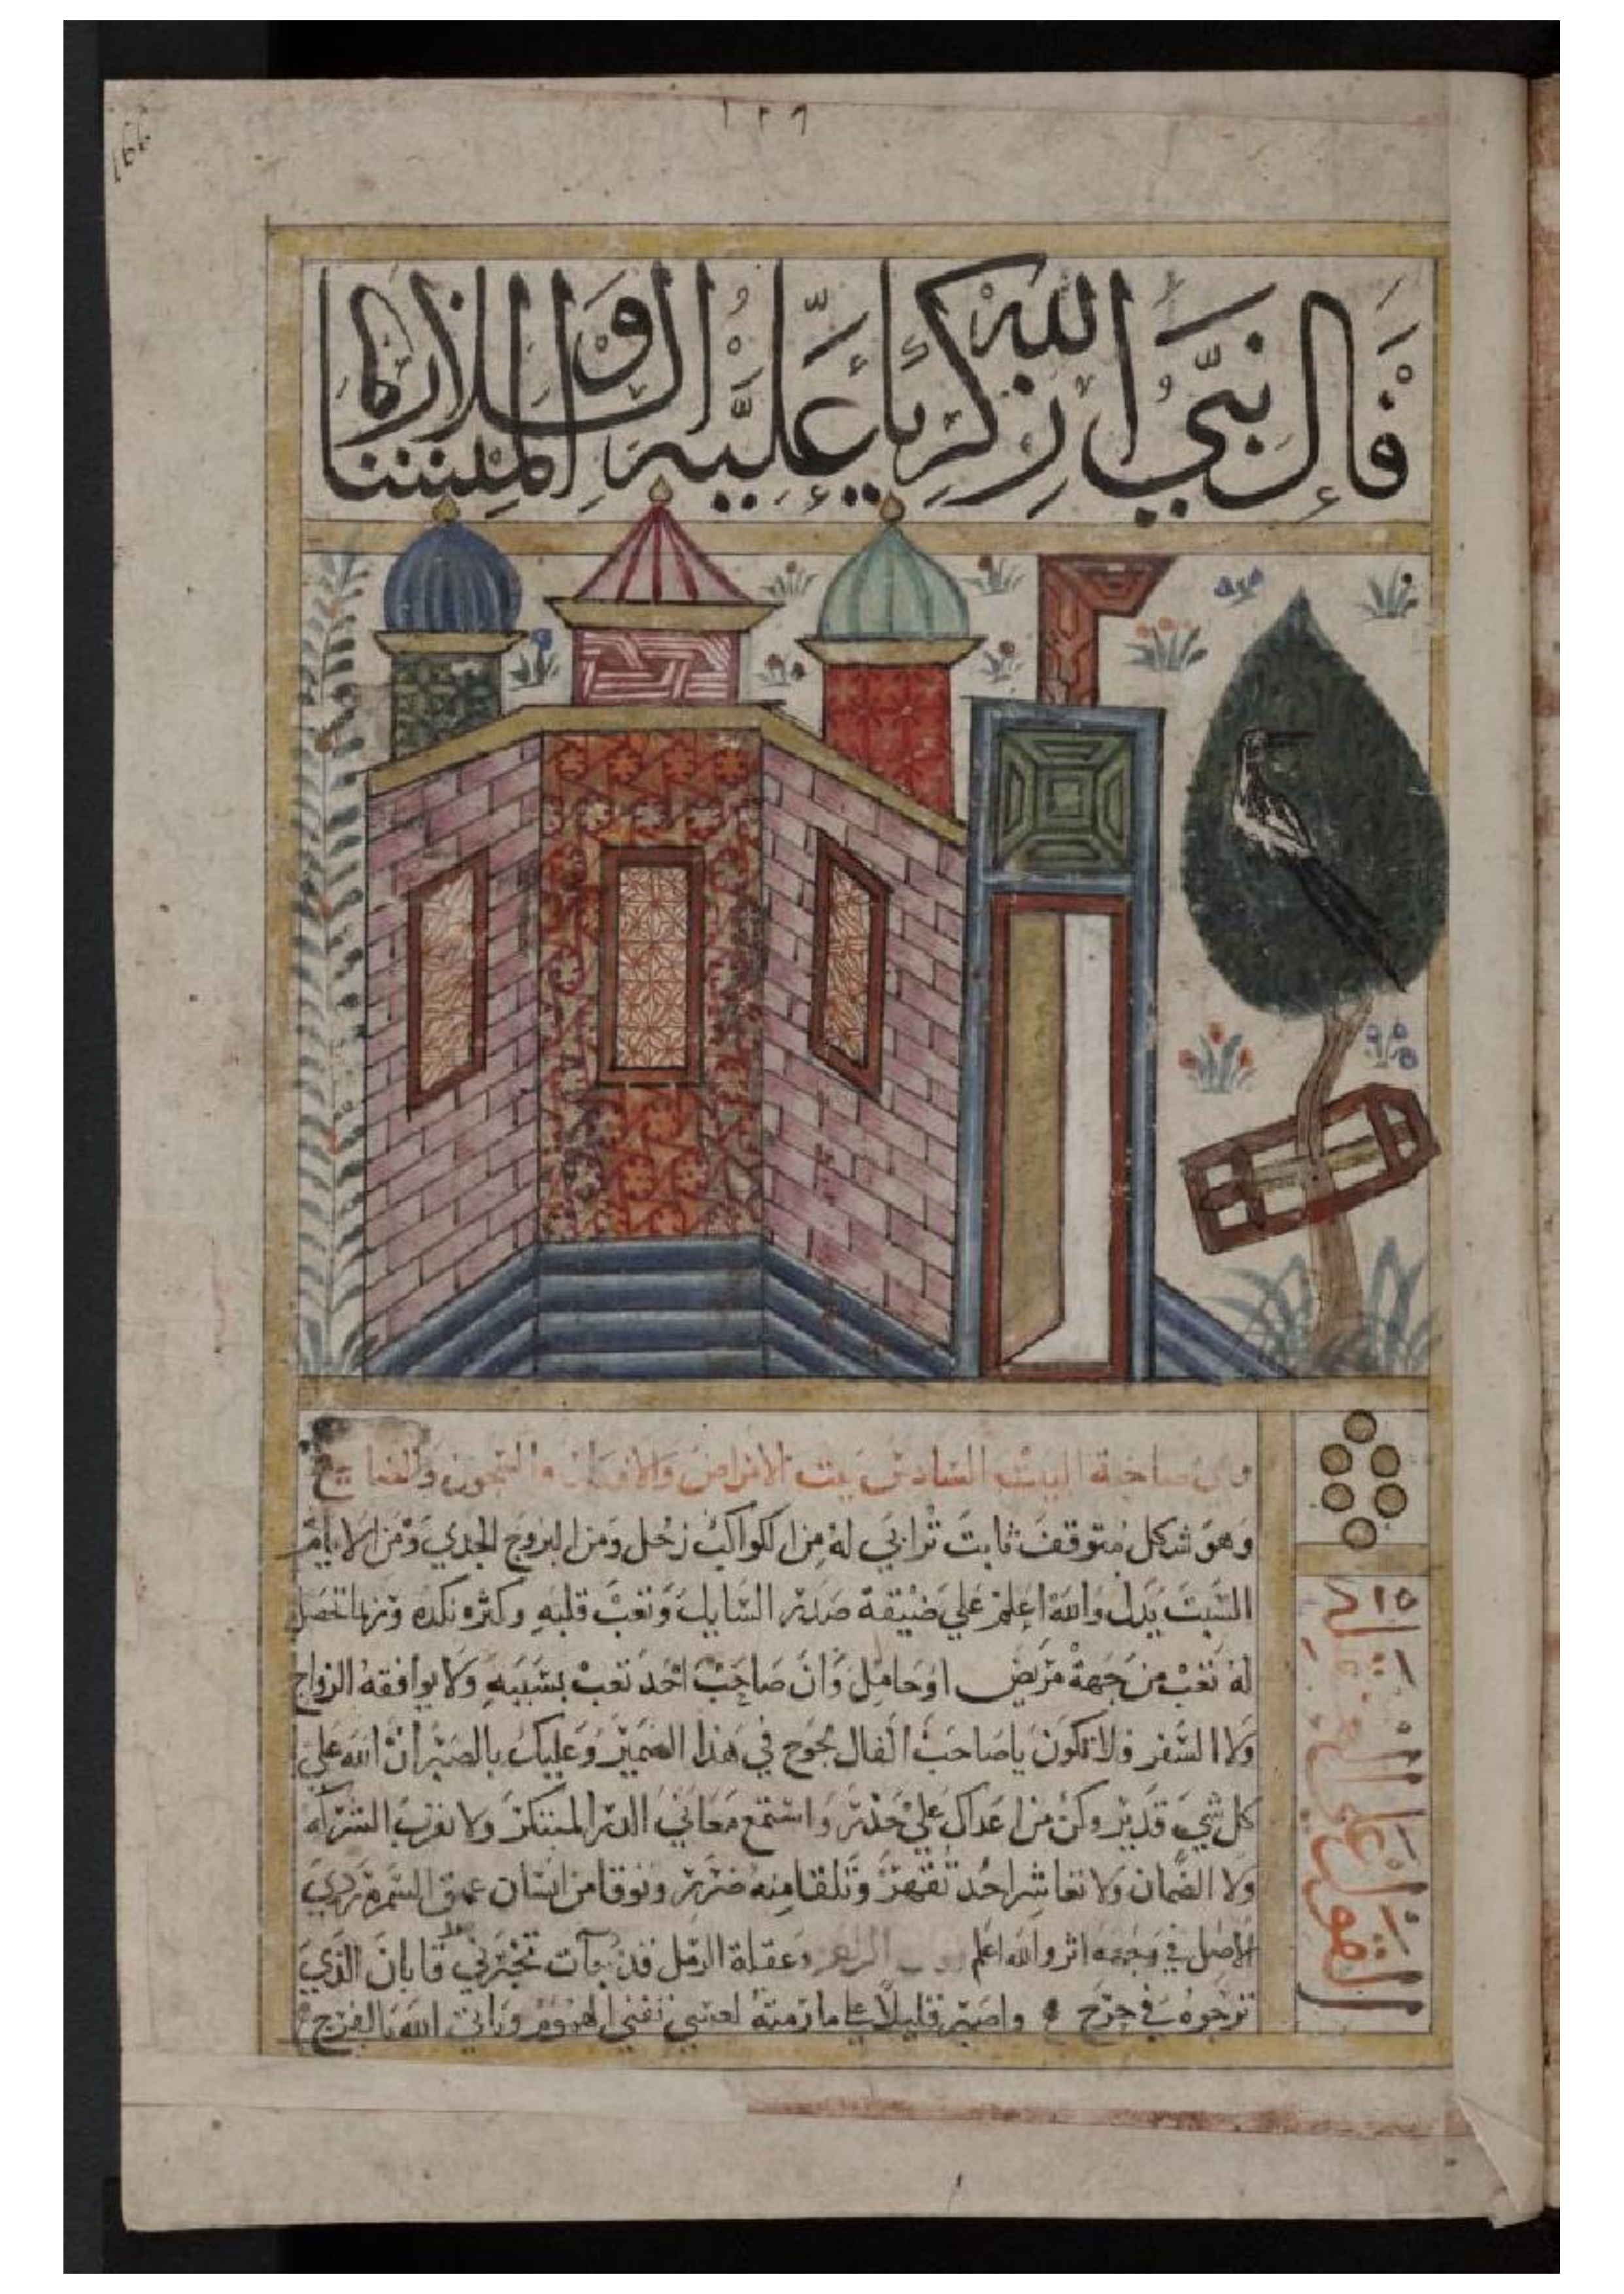 ١٢٩
فَال نبيّ الله زكريا عليه الصلاة والسلام المنشار
وهي صاحبة البيت السادس بيت الامراض والافعال والسجون والفجايع
وهو شكل متوقف ثابت ترابي له من الكواكب زحل ومن البروج الجدي ومن الايام
السبت يدل والله اعلم علي ضيقة صدر السايل وتعب قلبه وكثره نكده وربما تحصل
له تعب من جهة مريض او حامل وان صاحب احد تعب بسببه ولا يوافقه الزواج
ولا السفر فلا تكون يا صاحب الفال لجوج في هذا الضمير وعليك بالصبر ان الله علي
كل شيء قدير وكن من اعداك علي حذر واستمع معاني الدر المبتكر ولا تقرب الشركه
ولا الضمان ولا تعاشر احد تقهر وتلقا منه ضرر وتوقا من انسان عميق السمره ردي
الاصل في وجهه اثر والله اعلم وعقلة الرمل قد جآت تخبرني بان الذي
ترجوه في حرج واصبر قليلا علي ما رمته لعسي تفني الهموم وياتي الله بالفرج